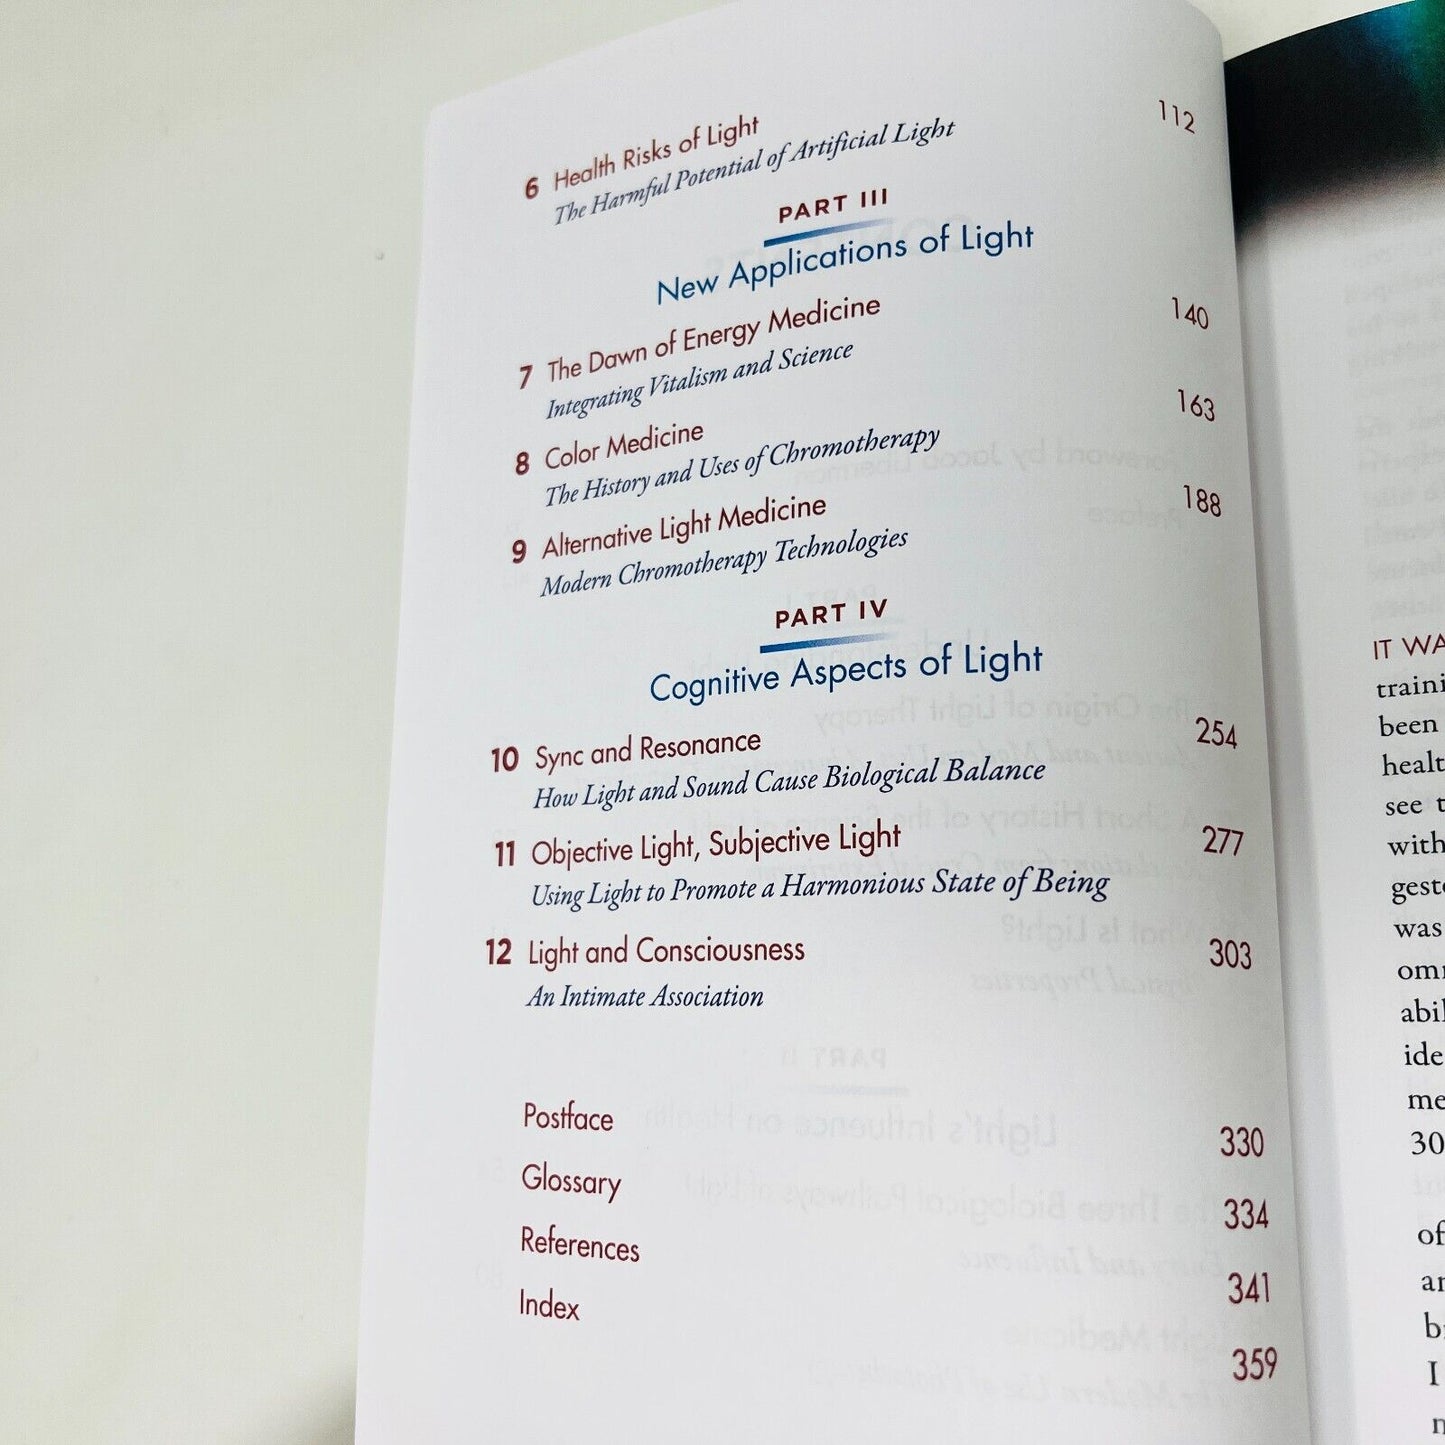 6 Health Risks of Light 112
The Harmful Potential of Artificial Light
PART III
New Applications of Light
7 The Dawn of Energy Medicine 140
Integrating Vitalism and Science
8 Color Medicine 163
The History and Uses of Chromotherapy
9 Alternative Light Medicine 188
Modern Chromotherapy Technologies
PART IV
Cognitive Aspects of Light
10 Sync and Resonance 254
How Light and Sound Cause Biological Balance
11 Objective Light, Subjective Light 277
Using Light to Promote a Harmonious State of Being
12 Light and Consciousness 303
An Intimate Association
Postface 330
Glossary 334
References 341
Index 359
IT WA
traini
been
healt
see t
with
gest
was
om
abil
ide
me
30
of
an
b
I
n